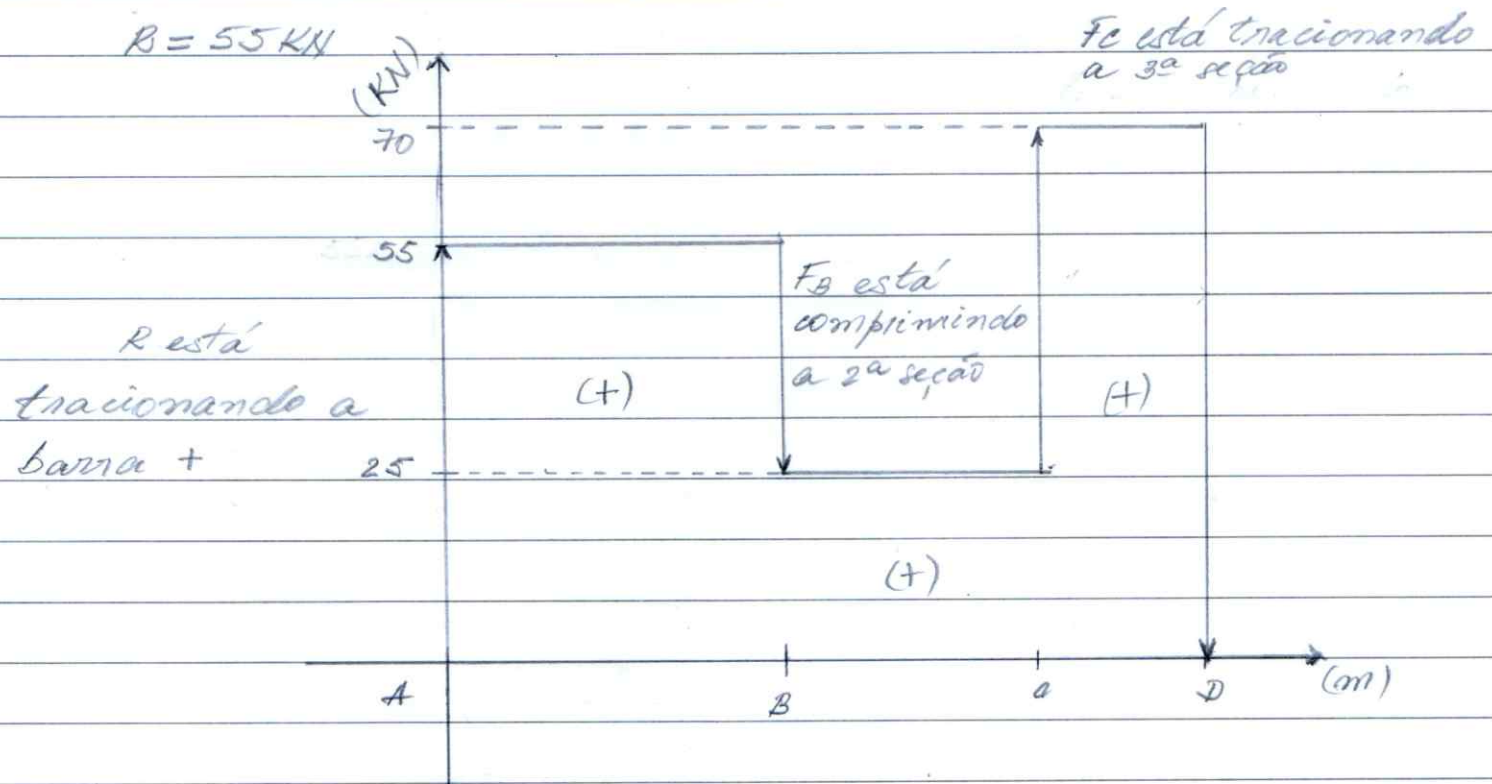 R = 55 KN
Fc está tracionando
a 3ª seção
(KN)
70
55
FB está
comprimindo
a 2ª seção
R está
tracionando a
barra +
(+)
(+)
25
(+)
A
B
a
D
(m)